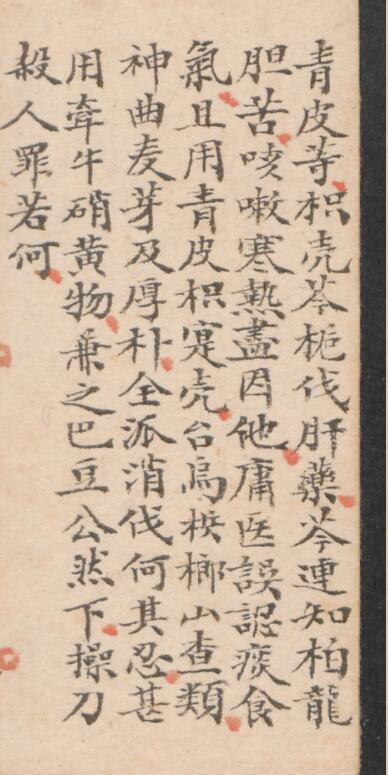 青皮等枳壳芩梔伐肝藥芩連知柏龍
胆苦咳嗽寒熱盡因他庸医誤認痰食
氣且用青皮枳寔壳台烏梹榔山查類
神曲麦芽及厚朴全派消伐何其忍甚
用牽牛硝黃物兼之巴豆公然下操刀
殺人罪若何